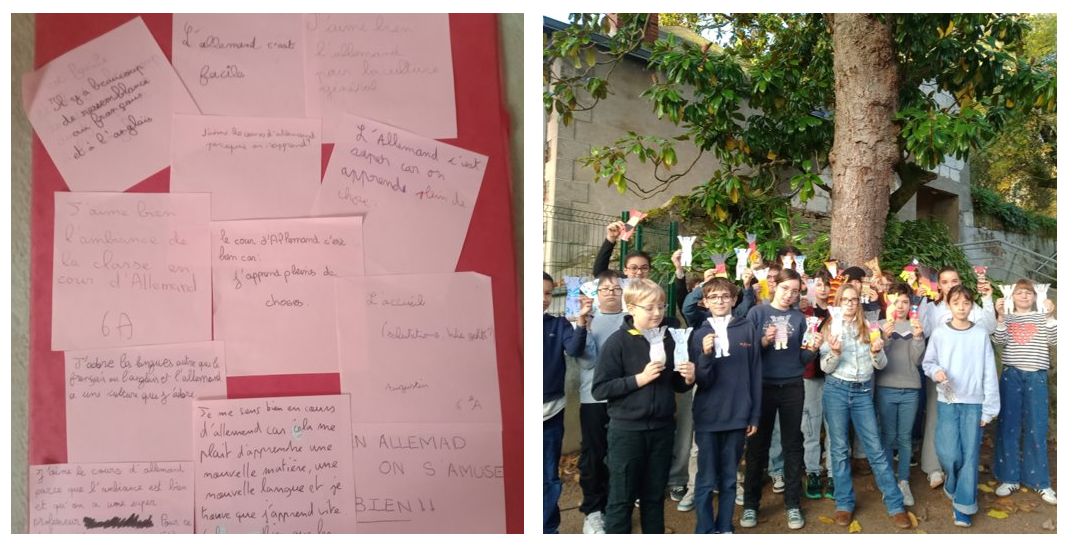 Il y a beaucoup
de ressemblance
au français
et à l'anglais
L'allemand c'est
facile
J'aime bien
l'allemand
pour la culture
général
J'aime les cours d'allemand
parce que on apprend
L'Allemand c'est
super car on
apprends plein de
chose.
J'aime bien
l'ambiance de
la classe en
cour d'Allemand
6A
le cour d'Allemand c'est
bien car:
j'apprend pleins de
choses.
L'accueil
Augustin
6 A
J'adore les langues autre que le
français ou l'anglais et l'allemand
a une culture que j'adore
Je me sens bien en cours
d'allemand car cela me
plait d'apprendre une
nouvelle matière, une
nouvelle langue et je
trouve que j'apprend vite
N ALLEMAD
ON S'AMUSE
BIEN !!
J'aime le cours d'allemand
parce que l'ambiance est bien
et qu'on a une super
professeur Pour ce